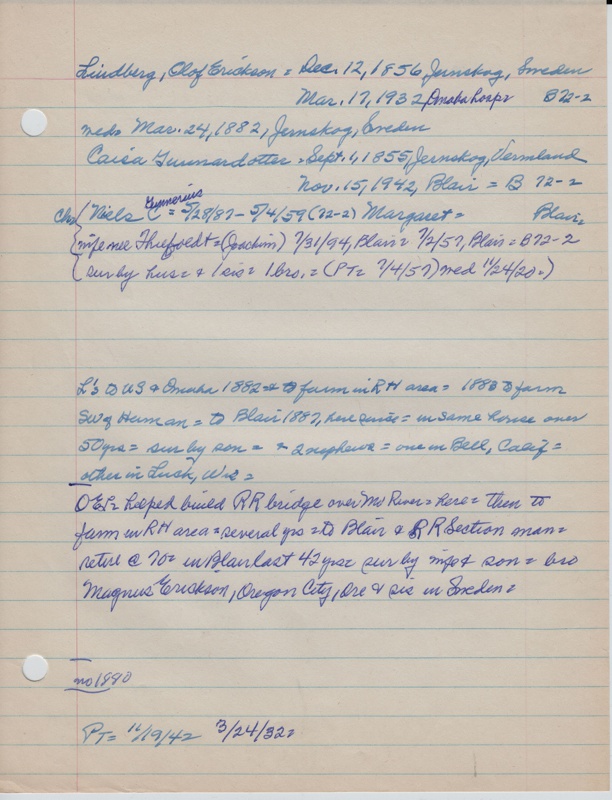 Lindberg, Olof Erickson = Dec. 12, 1856 Jernskog, Sweden
Mar. 17, 1932 Omaha Hosp= B72-2
wed= Mar. 24, 1882, Jernskog, Sweden
Caisa Gunnardotter = Sept. 1, 1855, Jernskog, Vermland
Nov. 15, 1942, Blair = B 72-2
Gunnerius
Chs ( Niels C = 5/28/87 - 5/4/59 (72-2) Margaret = Blair=
{ wife nee Thiefoldt = (Joachim) 7/31/94, Blair = 7/2/57, Blair = B72-2
( sur by hus = & 1 sis = 1 bro. = (PT= 7/4/57) wed 11/24/20=)
L's to US & Omaha 1882 = to farm in RH area = 1883 to farm
SW of Herman = to Blair 1887, here since = in same house over
50 yrs = sur by son = & 2 nephews = one in Bell, Calif =
other in Luck, Wis =
OEL = helped build RR bridge over Mo River = here = then to
farm in RH area = several yrs = to Blair & RR Section man =
retire @ 70 = in Blair last 42 yrs = sur by wife & son = bro
Magnus Erickson, Oregon City, Ore & sis in Sweden =
no 1890
PT= 11/19/42 3/24/32=